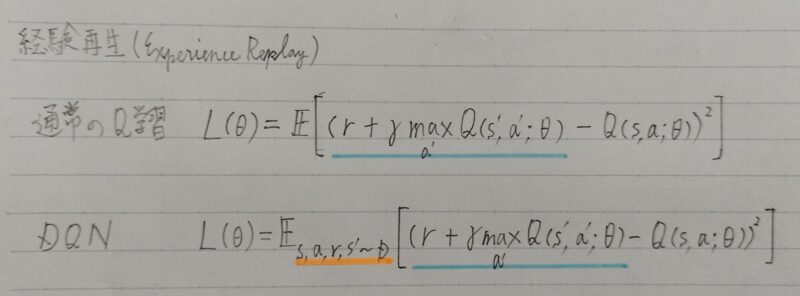 経験再生 (Experience Replay)
通常のQ学習 L(θ) = 𝔼[(r + γ max_{a'} Q(s', a'; θ) − Q(s, a; θ))²]
DQN L(θ) = 𝔼_{s, a, r, s' ~ D}[(r + γ max_{a'} Q(s', a'; θ) − Q(s, a; θ))²]